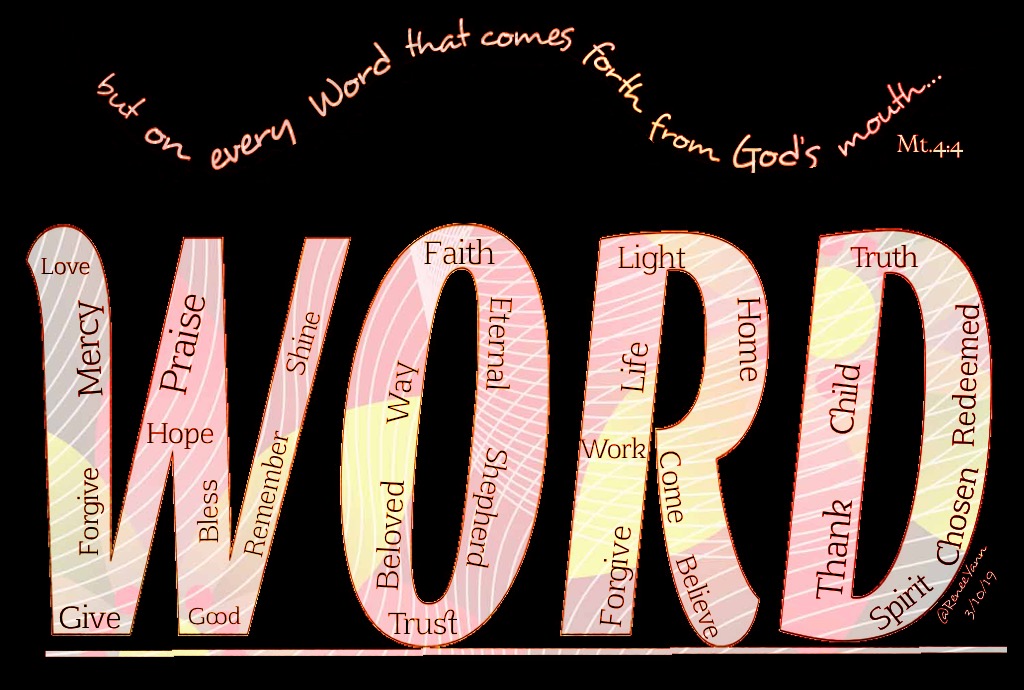 but on every Word that comes forth from God's mouth...
Mt.4:4
WORD
Love
Mercy
Forgive
Give
Praise
Hope
Bless
Good
Shine
Remember
Faith
Way
Beloved
Trust
Eternal
Shepherd
Light
Life
Work
Forgive
Home
Come
Believe
Truth
Child
Thank
Redeemed
Chosen
Spirit
@ReneeYann
3/10/19